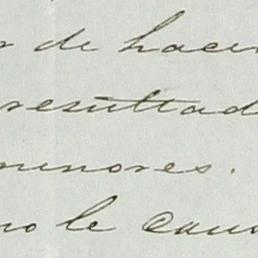 r de hacer
resultad
menores.
no le cau